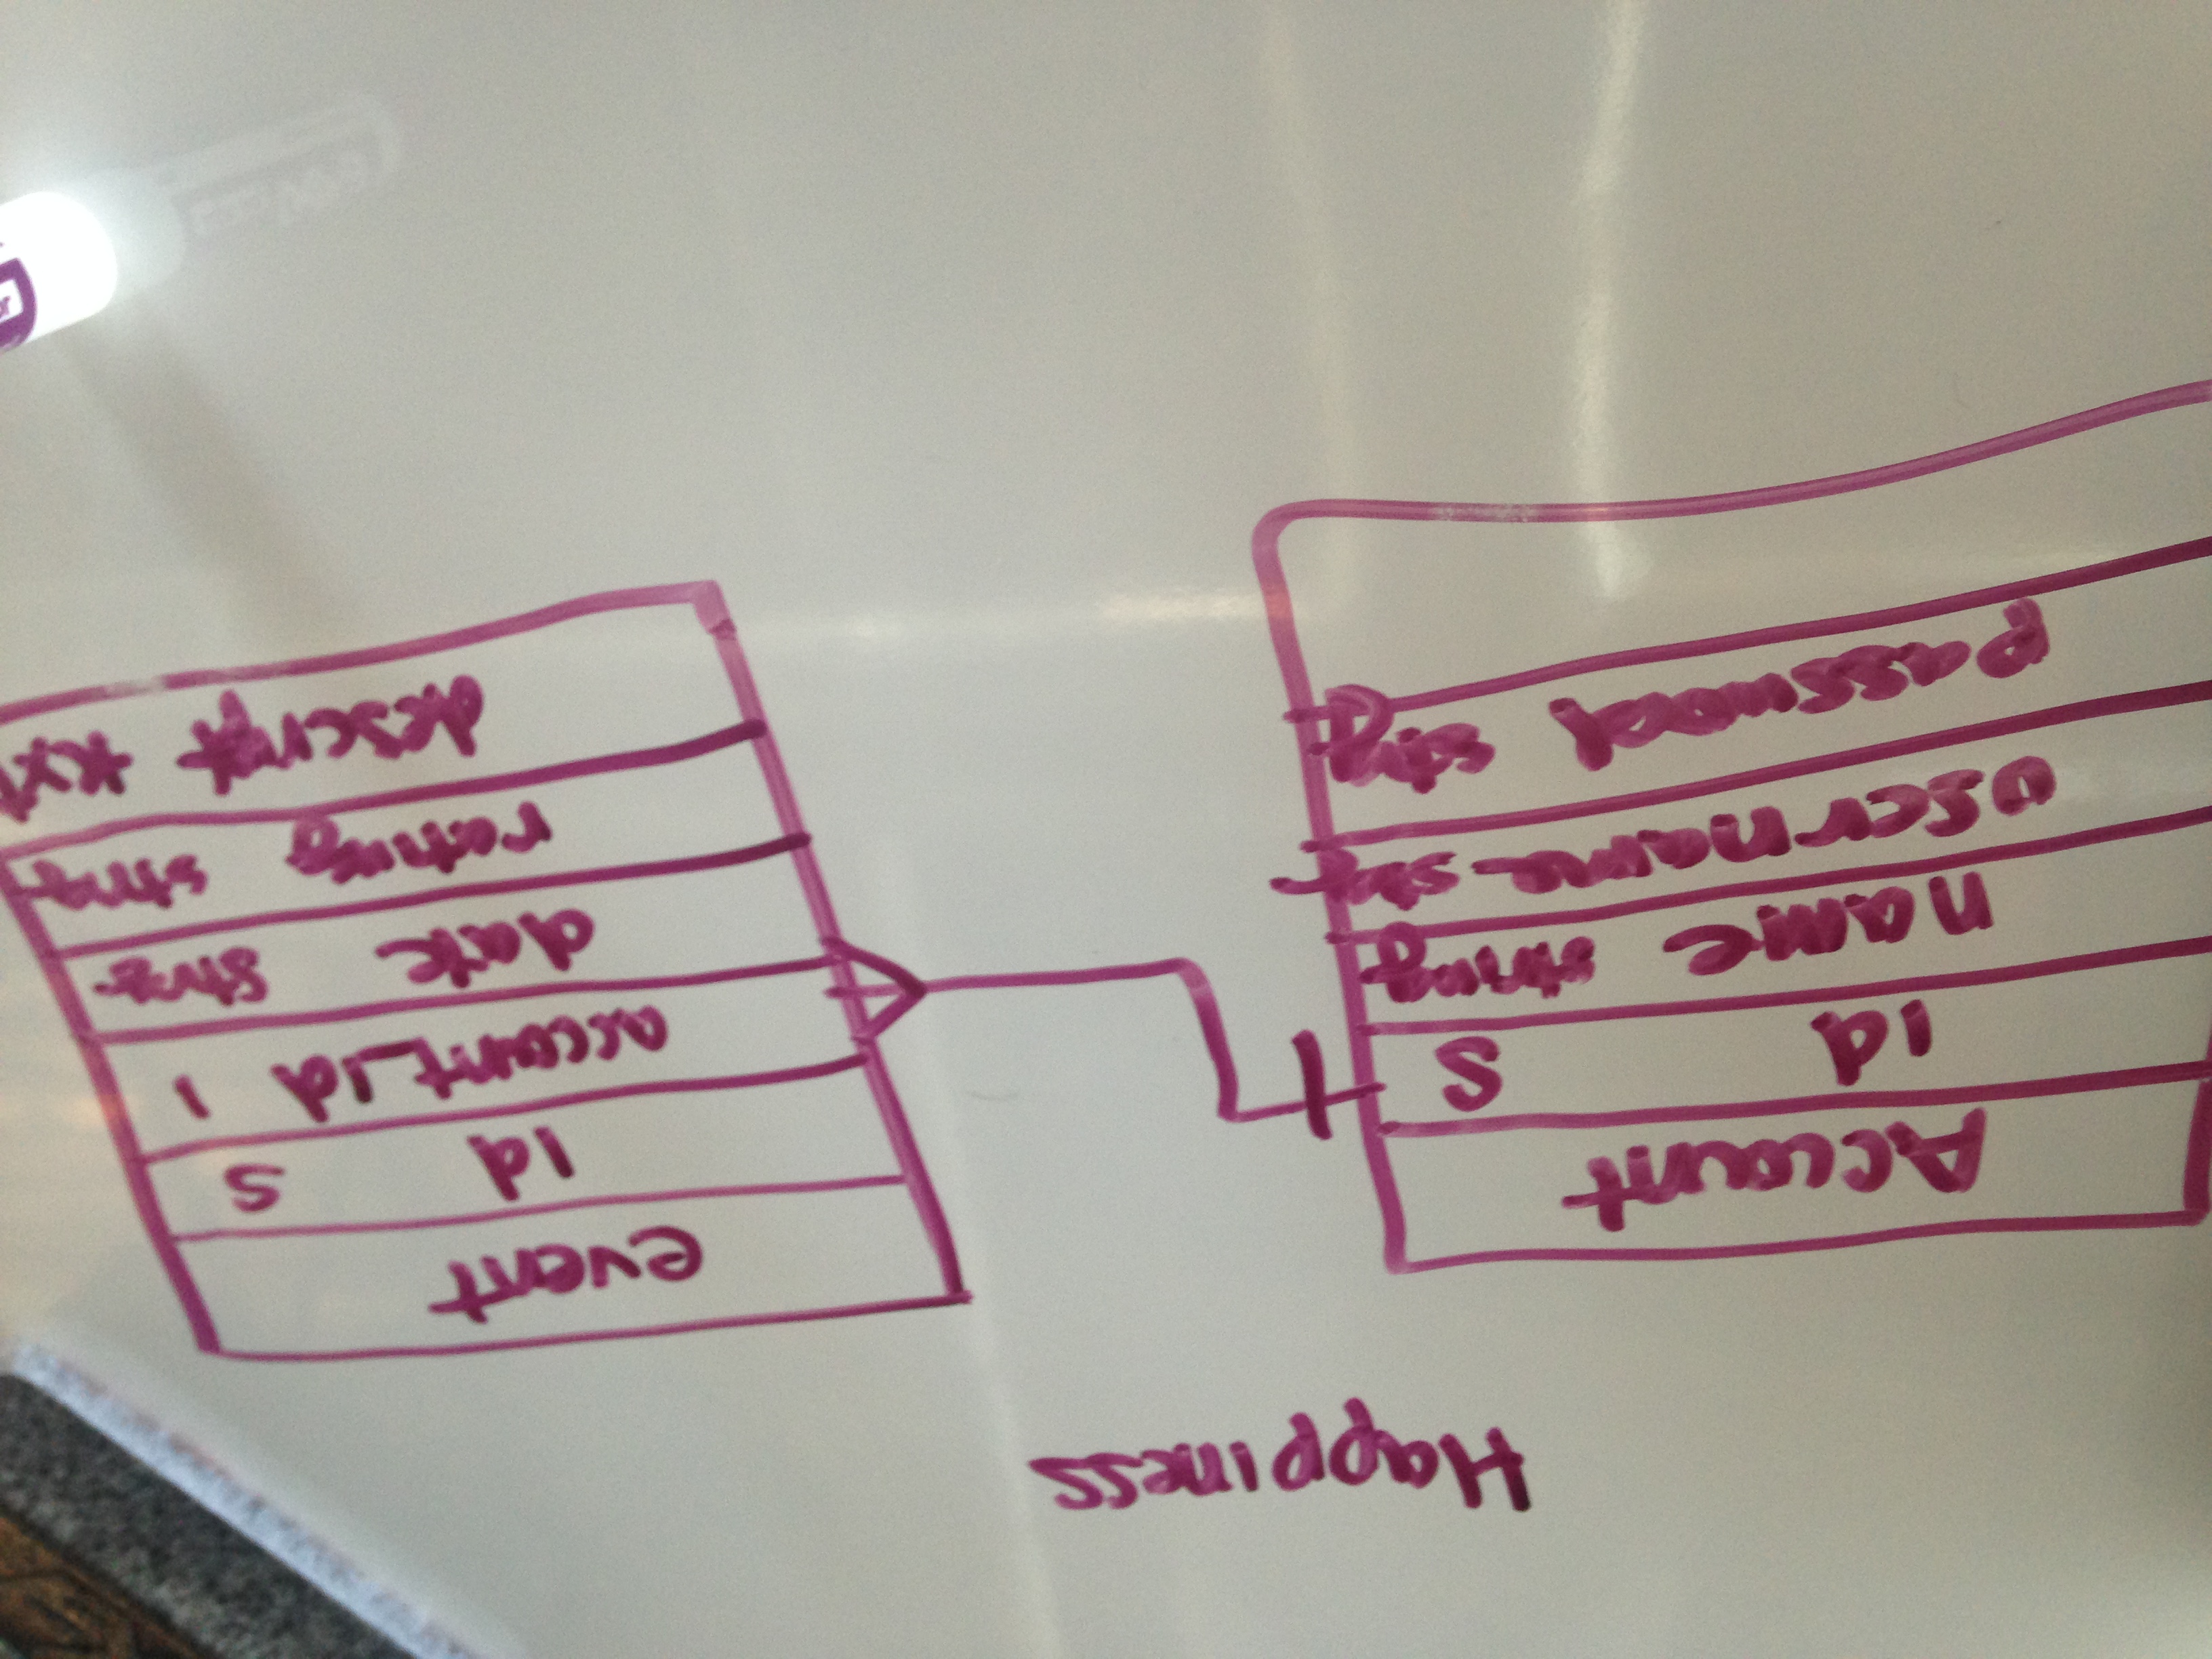 Happiness
Account
id S
name string
username strg
password strg
event
id S
account_id I
date strng
rating strng
descript text